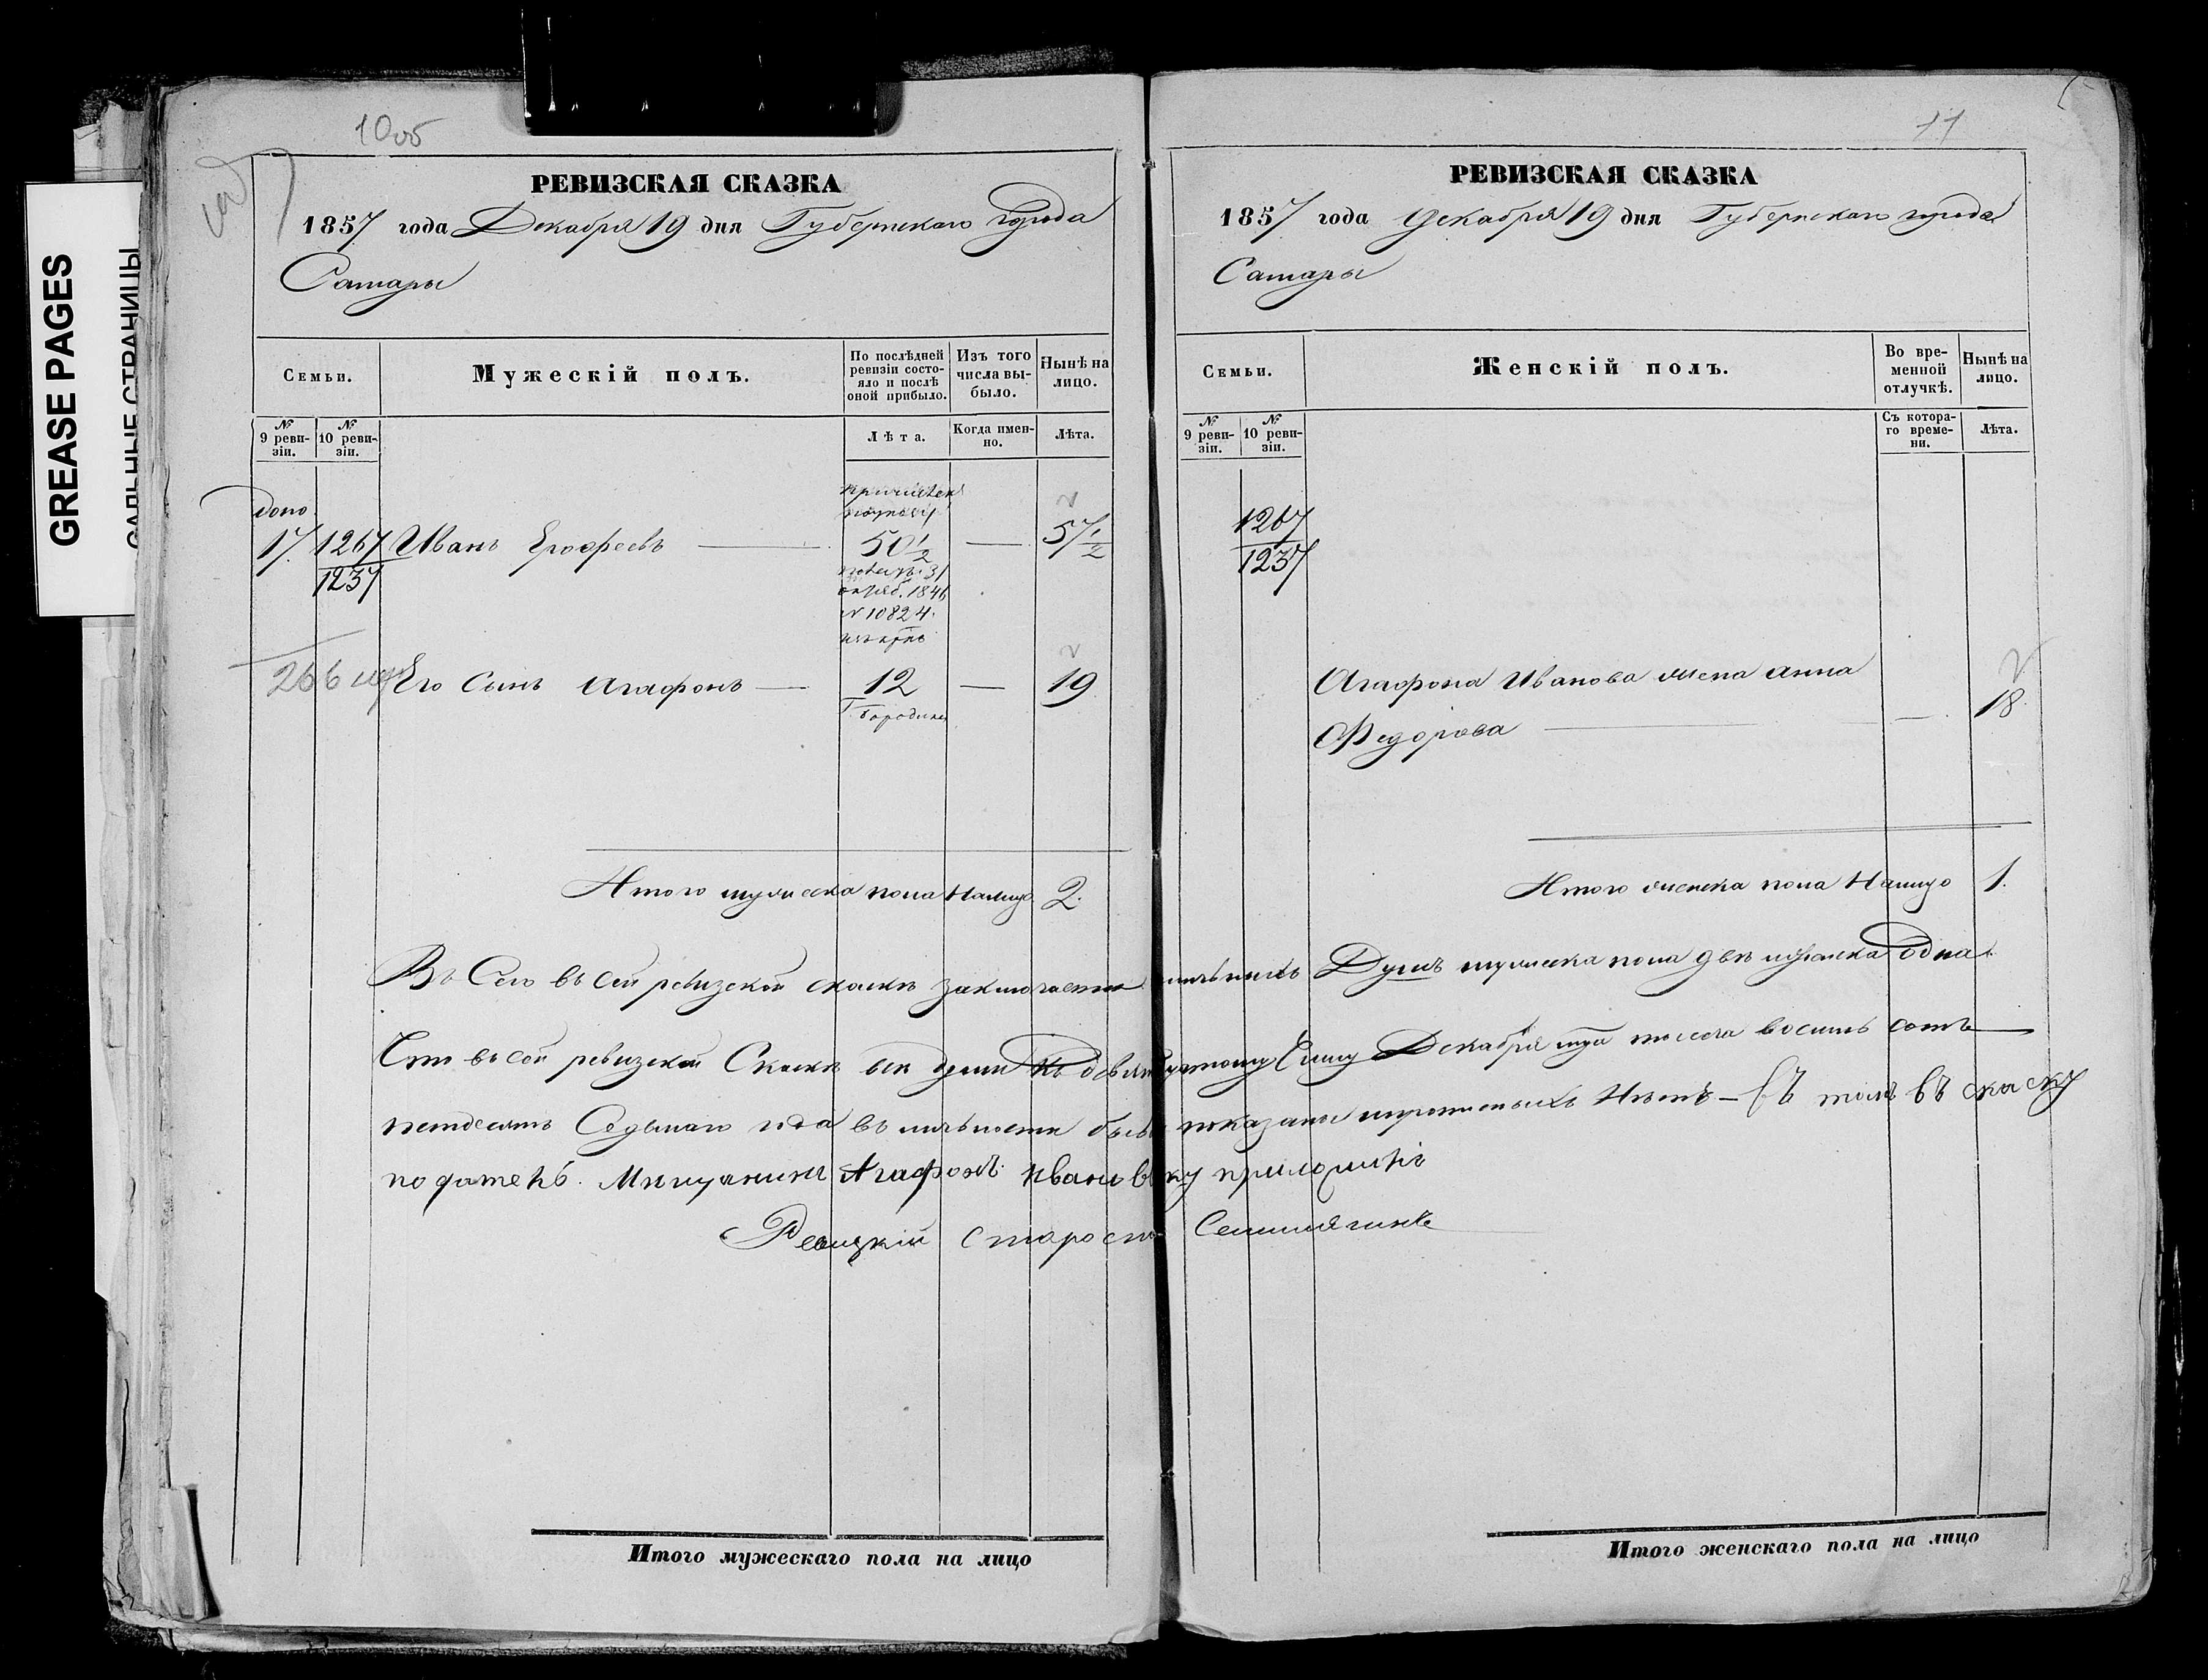 GREASE PAGES
САЛЬНЫЕ СТРАНИЦЫ
10об
РЕВИЗСКАЯ СКАЗКА
1857 года Декабря 19 дня Губернскаго города
Самары
Семьи.
Мужескій полъ.
По послѣдней ревизіи состо-
яло и послѣ
оной прибыло.
Изъ того
числа вы-
было.
Нынѣ на
лицо.
№
9 реви-
зіи.
№
10 реви-
зіи.
Лѣта.
Когда имен-
но.
Лѣта.
допо
17. 1267 Иванъ Ерофеевъ 50½ — 57½
1237
опред. 1846
№ 10824.
266 Его Сынъ Агафонъ — 12 — 19
Итого мужеска пола Налицо 2.
11
РЕВИЗСКАЯ СКАЗКА
1857 года Декабря 19 дня Губернскаго города
Самары
Семьи.
Женскій полъ.
Во вре-
менной
отлучкѣ.
Нынѣ на
лицо.
№
9 реви-
зіи.
№
10 реви-
зіи.
Съ котора-
го време-
ни.
Лѣта.
1267
1237
Агафона Иванова жена Анна
Федорова — 18.
Итого женска пола Налицо 1.
Въ Сего въ сей ревизской скаскѣ заключается Душъ мужеска пола двѣ и женска одна.
Что въ сей ревизской Скаскѣ все души къ Декабря тысеча восимь сотъ
петдесятъ Седьмаго года въ показаны Нѣтъ — Къ томъ въ скаску
податель. Мищанинъ Агафонъ Ивановъ руку приложилъ
Ревизкій Староста Семилягинъ
Итого мужескаго пола на лицо
Итого женскаго пола на лицо